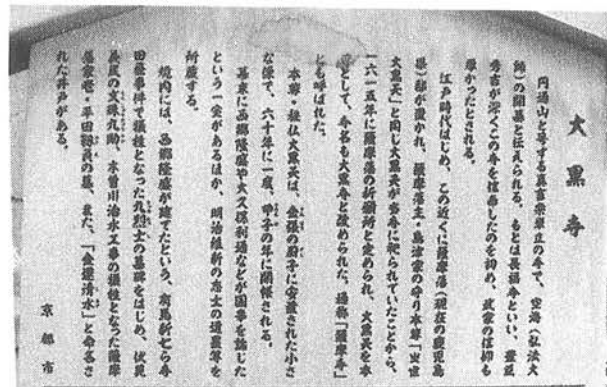 大黒寺
円通山と号する真言宗単立の寺で、空海（弘法大
師）の開基と伝えられる。もとは長福寺といい、豊臣
秀吉が深くこの寺を信奉したのを初め、武家の信仰も
厚かったとされる。
江戸時代はじめ、この近くに薩摩藩（現在の鹿児島
県）邸が置かれ、薩摩藩主・島津家の守り本尊「出世
大黒天」と同じ大黒天が当寺に祀られていたことから、
一六一五年に薩摩藩の祈願所と定められ、大黒天を本
尊として、寺名も大黒寺と改められた。通称「薩摩寺」
とも呼ばれた。
本尊・秘仏大黒天は、金張の厨子に安置された小さ
な像で、六十年に一度、甲子の年に開帳される。
幕末に西郷隆盛や大久保利通などが国事を論じた
という一室があるほか、明治維新の志士の遺墨等を
所蔵する。
境内には、西郷隆盛が建てたという、有馬新七ら寺
田屋事件で犠牲となった九烈士の墓碑をはじめ、伏見
義民の文殊九助、木曽川治水工事の犠牲となった薩摩
藩家老・平田靱負の墓、また、「金運清水」と命名さ
れた井戸がある。
京都市